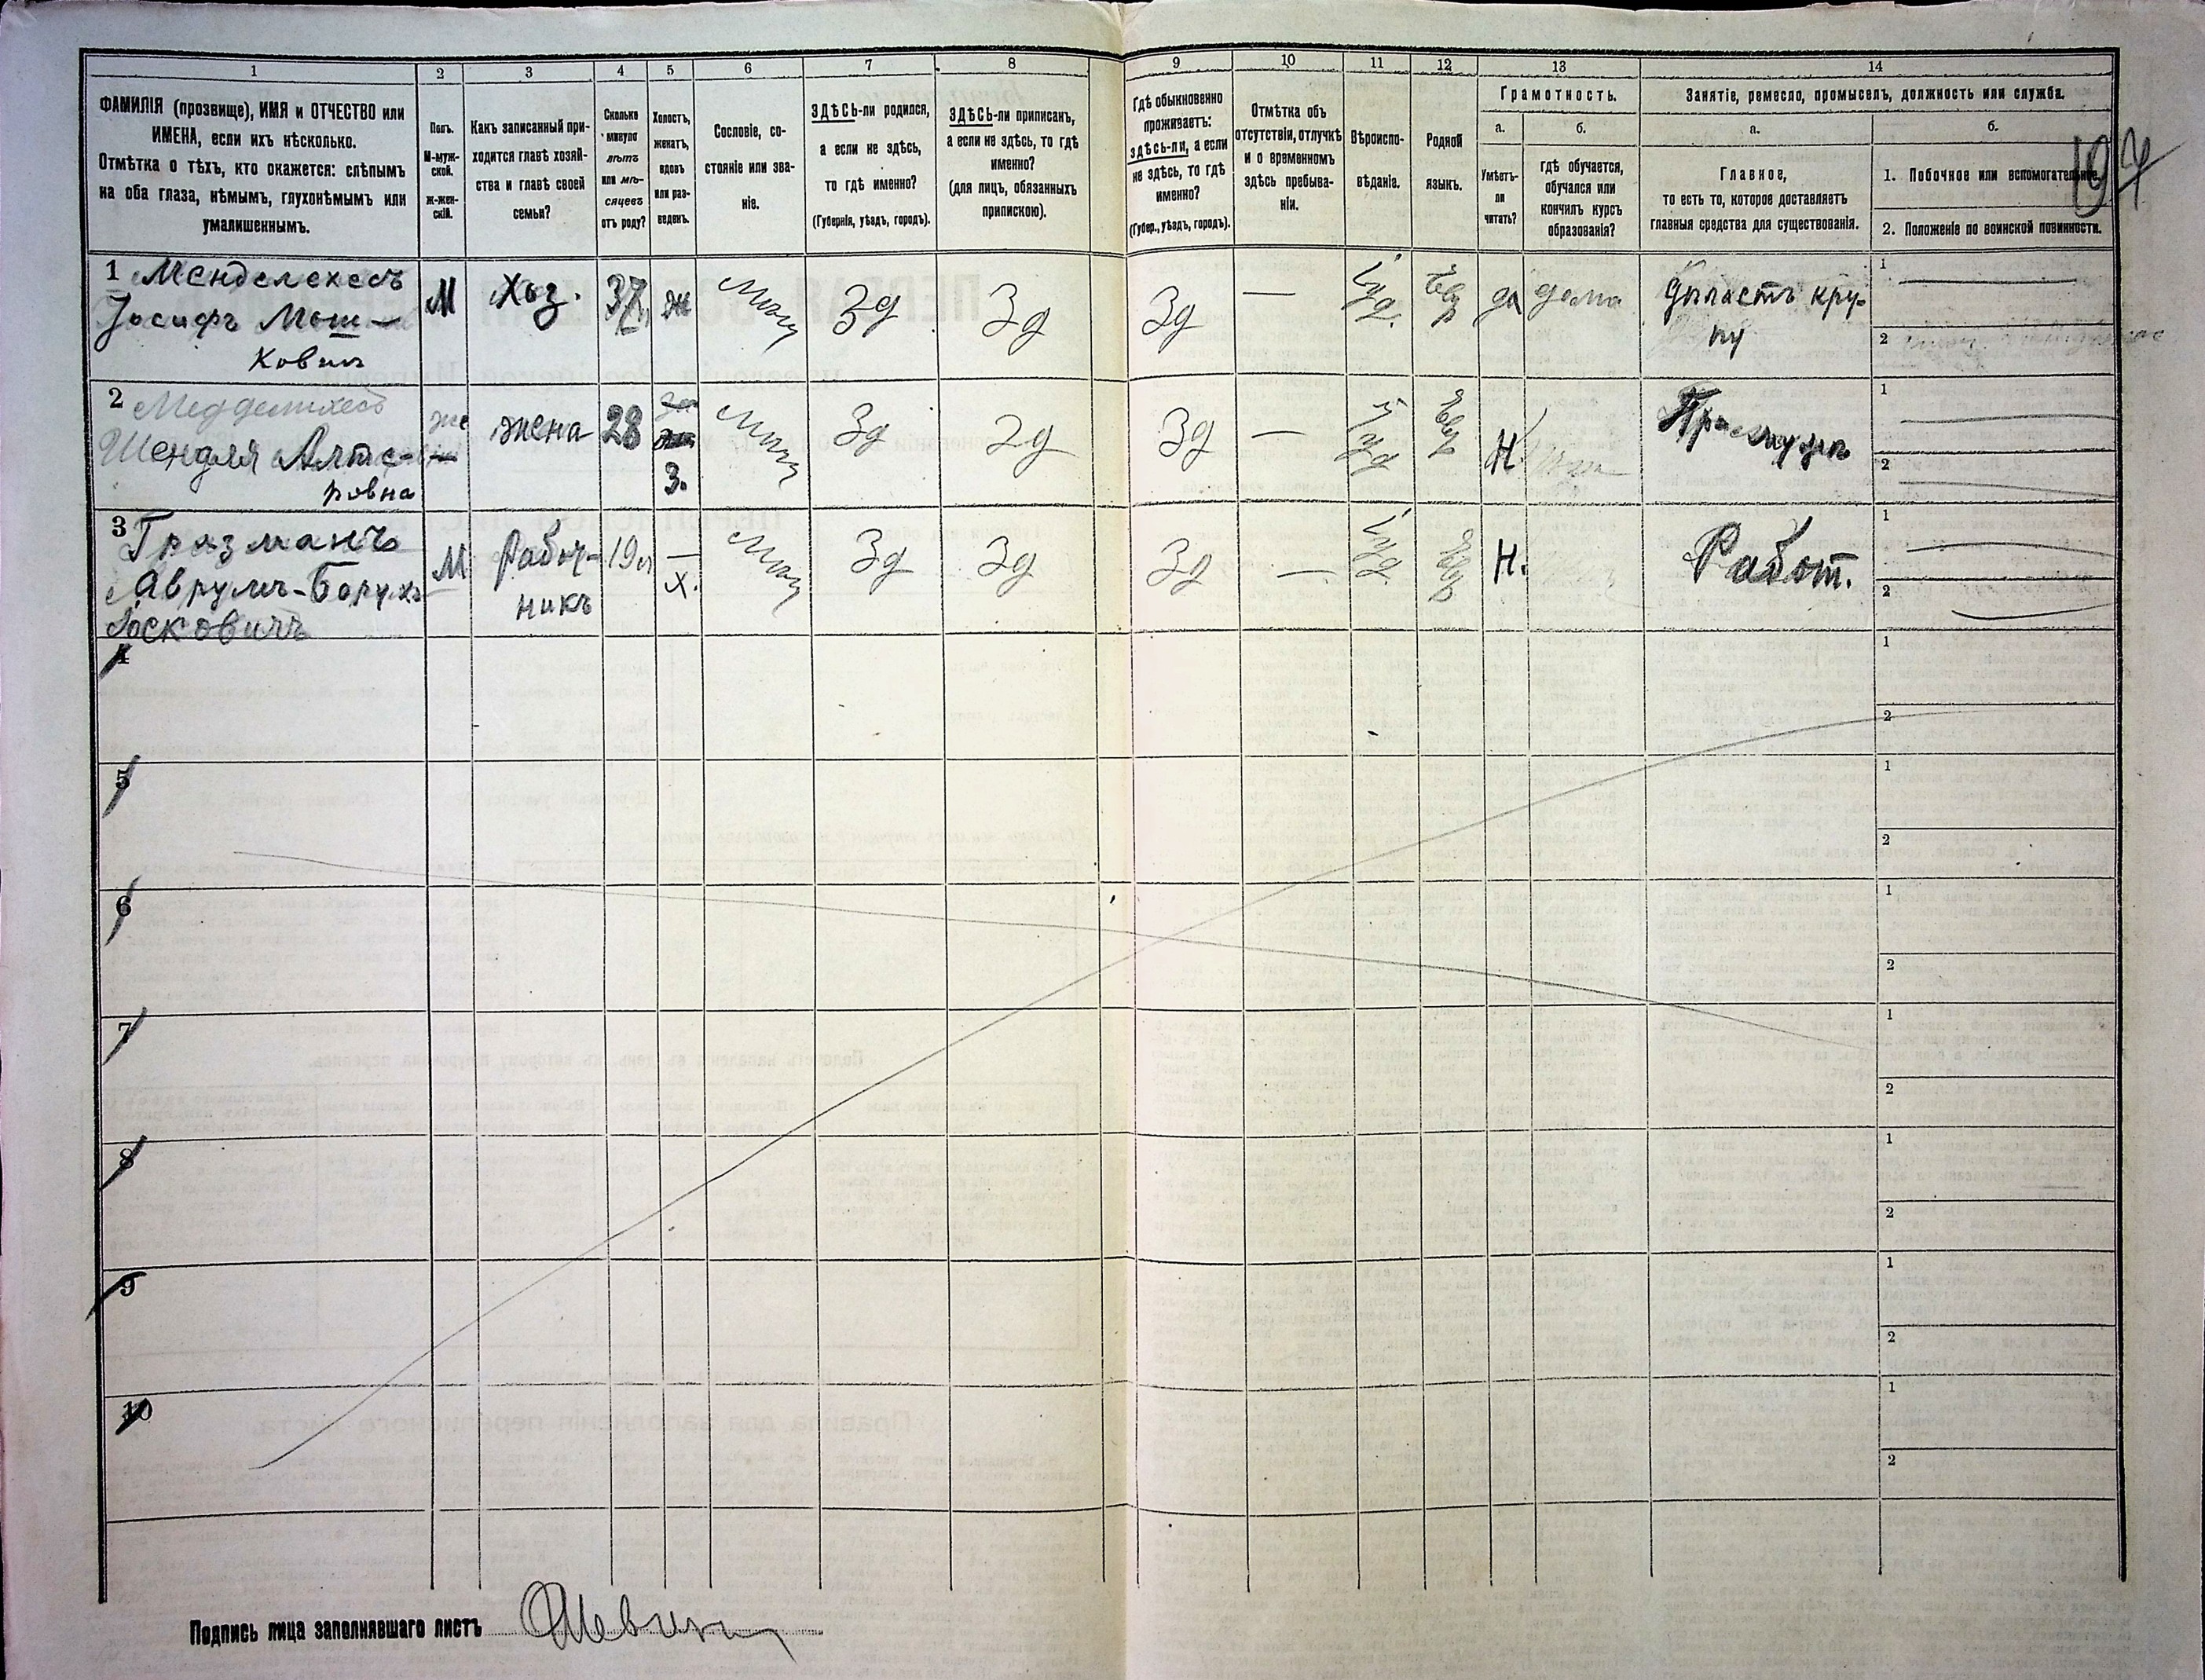 1
2
3
4
5
6
7
8
9
10
11
12
13
14
ФАМИЛІЯ (прозвище), ИМЯ и ОТЧЕСТВО или
ИМЕНА, если ихъ нѣсколько.
Отмѣтка о тѣхъ, кто окажется: слѣпымъ
на оба глаза, нѣмымъ, глухонѣмымъ или
умалишеннымъ.
Полъ.
М-муж-
ской.
ж-жен-
скій.
Какъ записанный при-
ходится главѣ хозяй-
ства и главѣ своей
семьи?
Сколько
минуло
лѣтъ
или мѣ-
сяцевъ
отъ роду?
Холостъ,
женатъ,
вдовъ
или раз-
веденъ.
Сословіе, со-
стояніе или зва-
ніе.
ЗДѢСЬ-ли родился,
а если не здѣсь,
то гдѣ именно?
(Губернія, уѣздъ, городъ).
ЗДѢСЬ-ли приписанъ,
а если не здѣсь, то гдѣ
именно?
(для лицъ, обязанныхъ
припискою).
Гдѣ обыкновенно
проживаетъ:
здѣсь-ли, а если
не здѣсь, то гдѣ
именно?
(Губер., уѣздъ, городъ).
Отмѣтка объ
отсутствіи, отлучкѣ
и о временномъ
здѣсь пребыва-
ніи.
Вѣроиспо-
вѣданіе.
Родной
языкъ.
Грамотность.
а.
Умѣетъ-
ли
читать?
б.
гдѣ обучается,
обучался или
кончилъ курсъ
образованія?
Занятіе, ремесло, промыселъ, должность или служба.
а.
Главное,
то есть то, которое доставляетъ
главныя средства для существованія.
б.
1. Побочное или вспомогательное.
2. Положеніе по воинской повинности.
197
1 Менделехесъ
Іосифъ Мош-
ковичъ
М
Хоз.
37
ж
мѣщ
Зд
Зд
Зд
—
Іуд.
Евр
да
дома
Дѣлаетъ кру-
пу
1
2
2
Шендля Алте-
ровна
же
жена
28
З.
мѣщ
Зд
Зд
Зд
—
Іуд
Евр
Н
1
2
3 Гразманъ
Аврумъ-Борухъ
Іосковичъ
М
Работ-
никъ
19
—
х.
мѣщ
Зд
Зд
Зд
—
Іуд.
Евр
Н.
Работ.
1
2
4
1
2
5
1
2
6
1
2
7
1
2
8
1
2
9
1
2
10
1
2
Подпись лица заполнявшаго листъ